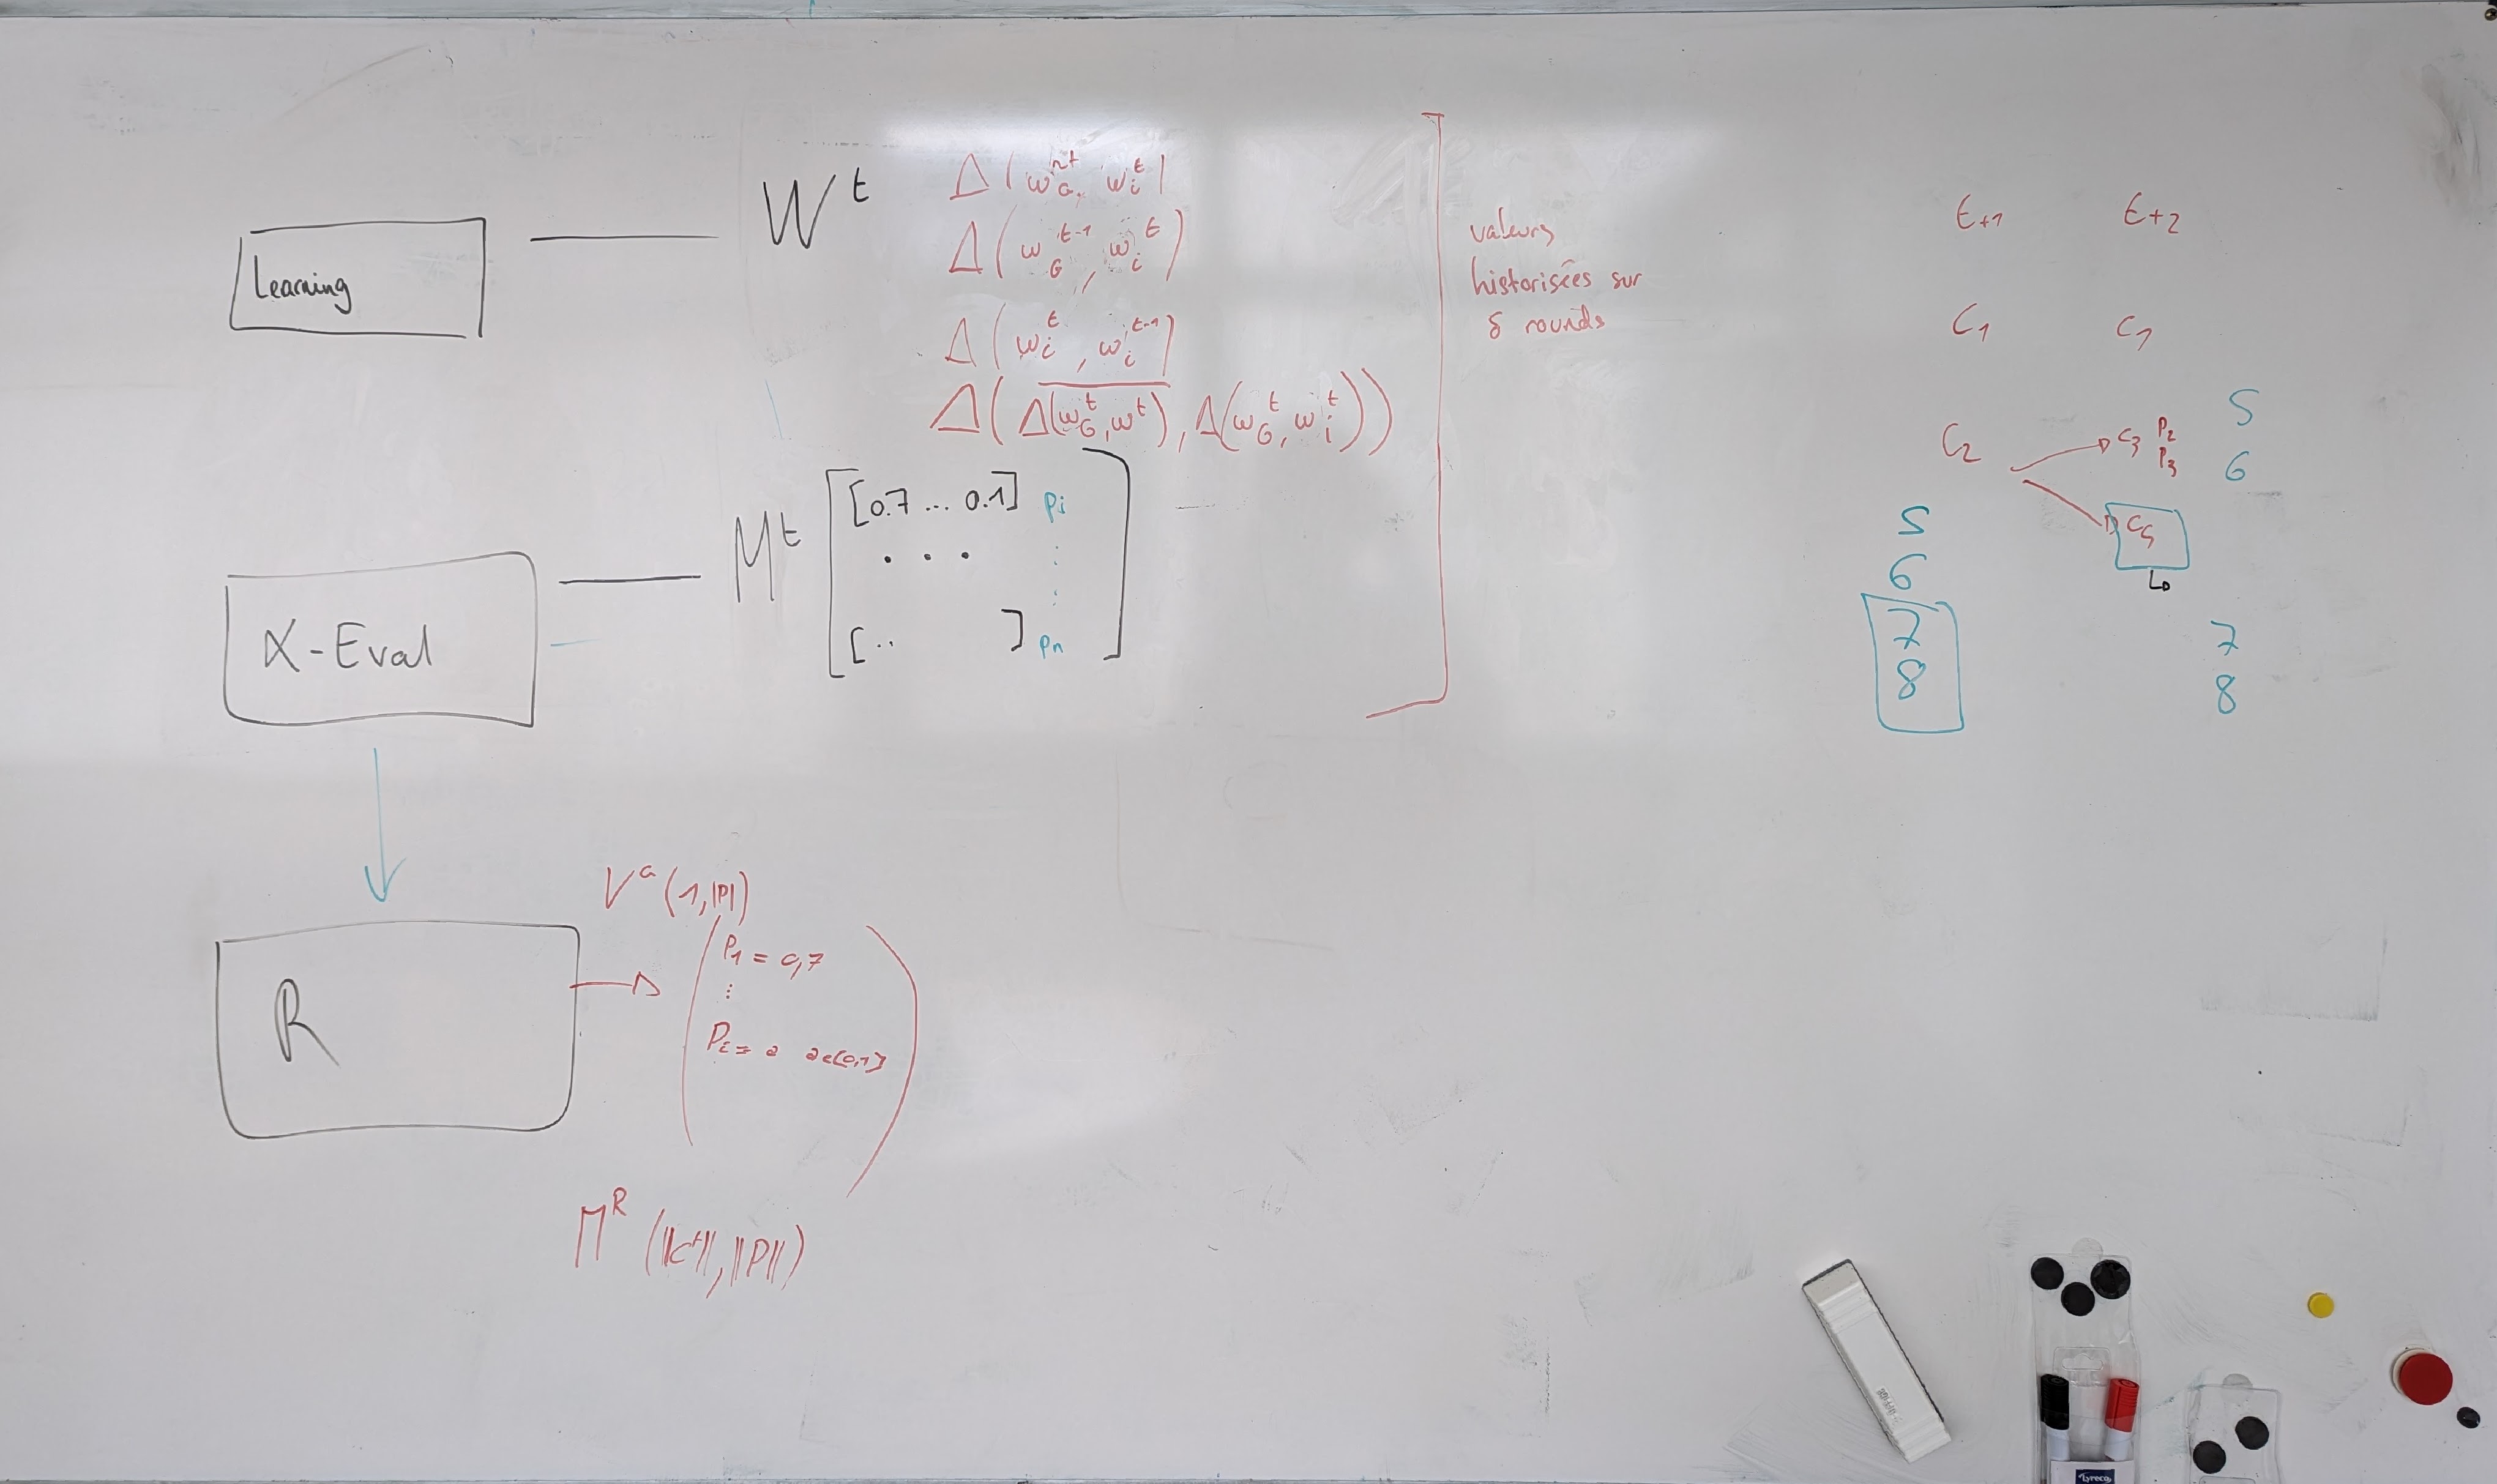 Learning
W^t
Δ(w_i^t
Δ(w_G^{t-1}, w_i^t)
Δ(w_i^t, w_i^{t-1})
Δ(Δ(w_G^t, w^t), Δ(w_G^t, w_i^t))
valeurs
historisées sur
δ rounds
X-Eval
M^t
[0.7 ... 0.1] Pi
. . .
[.. ] Pn
R
V^a (1, |P|)
P1 = 0,7
⋮
Pi = a a∈[0,1]
M^R (||C^t||, ||P||)
t+1 t+2
C1 C1
C2
C3 P2
P3
5
6
5
6
7
8
7
8
Lyreco